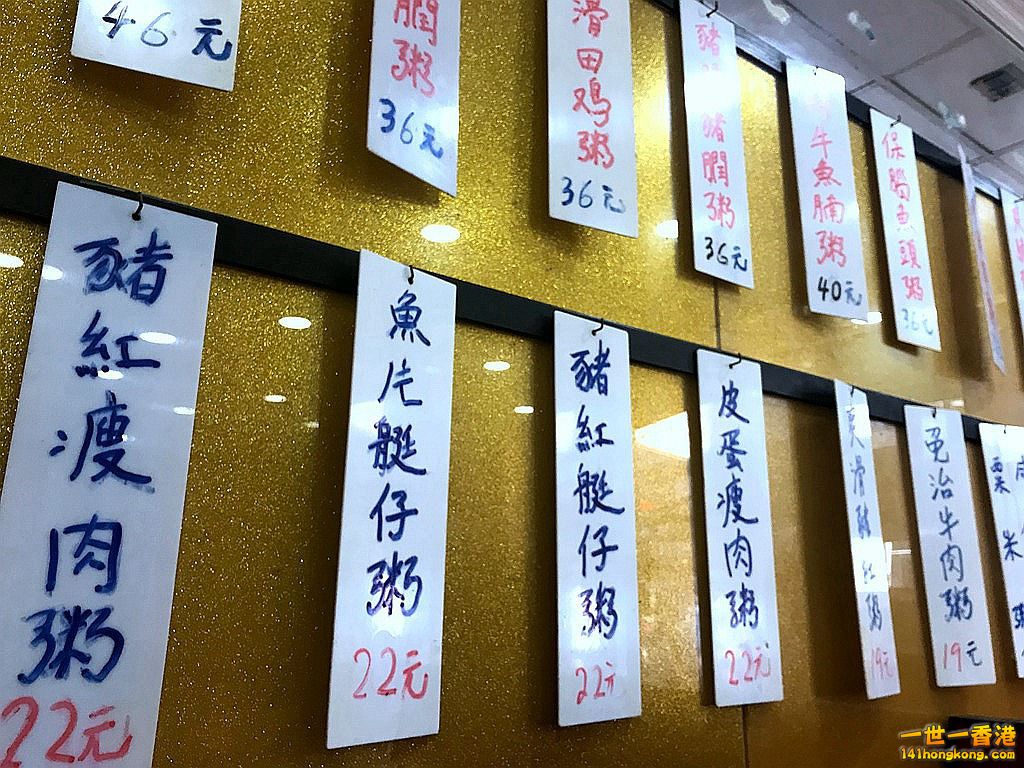 46元
膶粥
36元
滑田鸡粥
36元
豬膶粥
36元
牛魚腩粥
40元
保腦魚頭粥
36元
豬紅瘦肉粥
22元
魚片艇仔粥
22元
豬紅艇仔粥
22元
皮蛋瘦肉粥
22元
爽滑豬红粥
19元
免治牛肉粥
19元
粟米
一世一香港
141hongkong.com